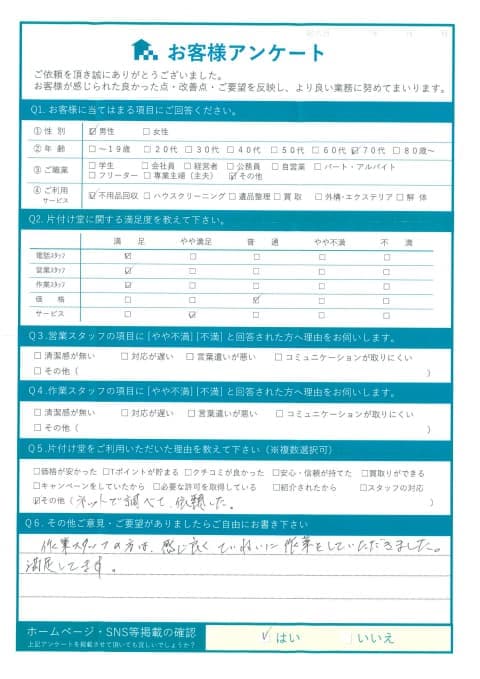 お客様アンケート
ご依頼を頂き誠にありがとうございました。
お客様が感じられた良かった点・改善点・ご要望を反映し、より良い業務に努めてまいります。
Q1. お客様に当てはまる項目にご回答ください。
①性 別 ☑男性 □女性
②年 齢 □～19歳 □20代 □30代 □40代 □50代 □60代 ☑70代 □80歳～
③ご職業 □学生 □会社員 □経営者 □公務員 □自営業 □パート・アルバイト
□フリーター □専業主婦（主夫） ☑その他
④ご利用サービス ☑不用品回収 □ハウスクリーニング □遺品整理 □買取 □外構・エクステリア □解体
Q2. 片付け堂に関する満足度を教えて下さい。
満 足 やや満足 普 通 やや不満 不 満
電話ｽﾀｯﾌ ☑ □ □ □ □
営業ｽﾀｯﾌ ☑ □ □ □ □
作業ｽﾀｯﾌ ☑ □ □ □ □
価 格 □ □ ☑ □ □
サービス □ ☑ □ □ □
Q3.営業スタッフの項目に[やや不満][不満]と回答された方へ理由をお伺いします。
□清潔感が無い □対応が遅い □言葉遣いが悪い □コミュニケーションが取りにくい
□その他（ ）
Q4.作業スタッフの項目に[やや不満][不満]と回答された方へ理由をお伺いします。
□清潔感が無い □対応が遅い □言葉遣いが悪い □コミュニケーションが取りにくい
□その他（ ）
Q5.片付け堂をご利用いただいた理由を教えて下さい（※複数選択可）
□価格が安かった □Tポイントが貯まる □クチコミが良かった □安心・信頼が持てた □買取りができる
□キャンペーンをしていたから □必要な許可を取得している □紹介されたから □スタッフの対応
☑その他（ ネットで調べて、依頼した。 ）
Q6. その他ご意見・ご要望がありましたらご自由にお書き下さい
作業スタッフの方は、感じ良くていねいに作業をしていただきました。
満足してます。
ホームページ・SNS等掲載の確認 ☑はい □いいえ
上記アンケートを掲載させて頂いても宜しいでしょうか？